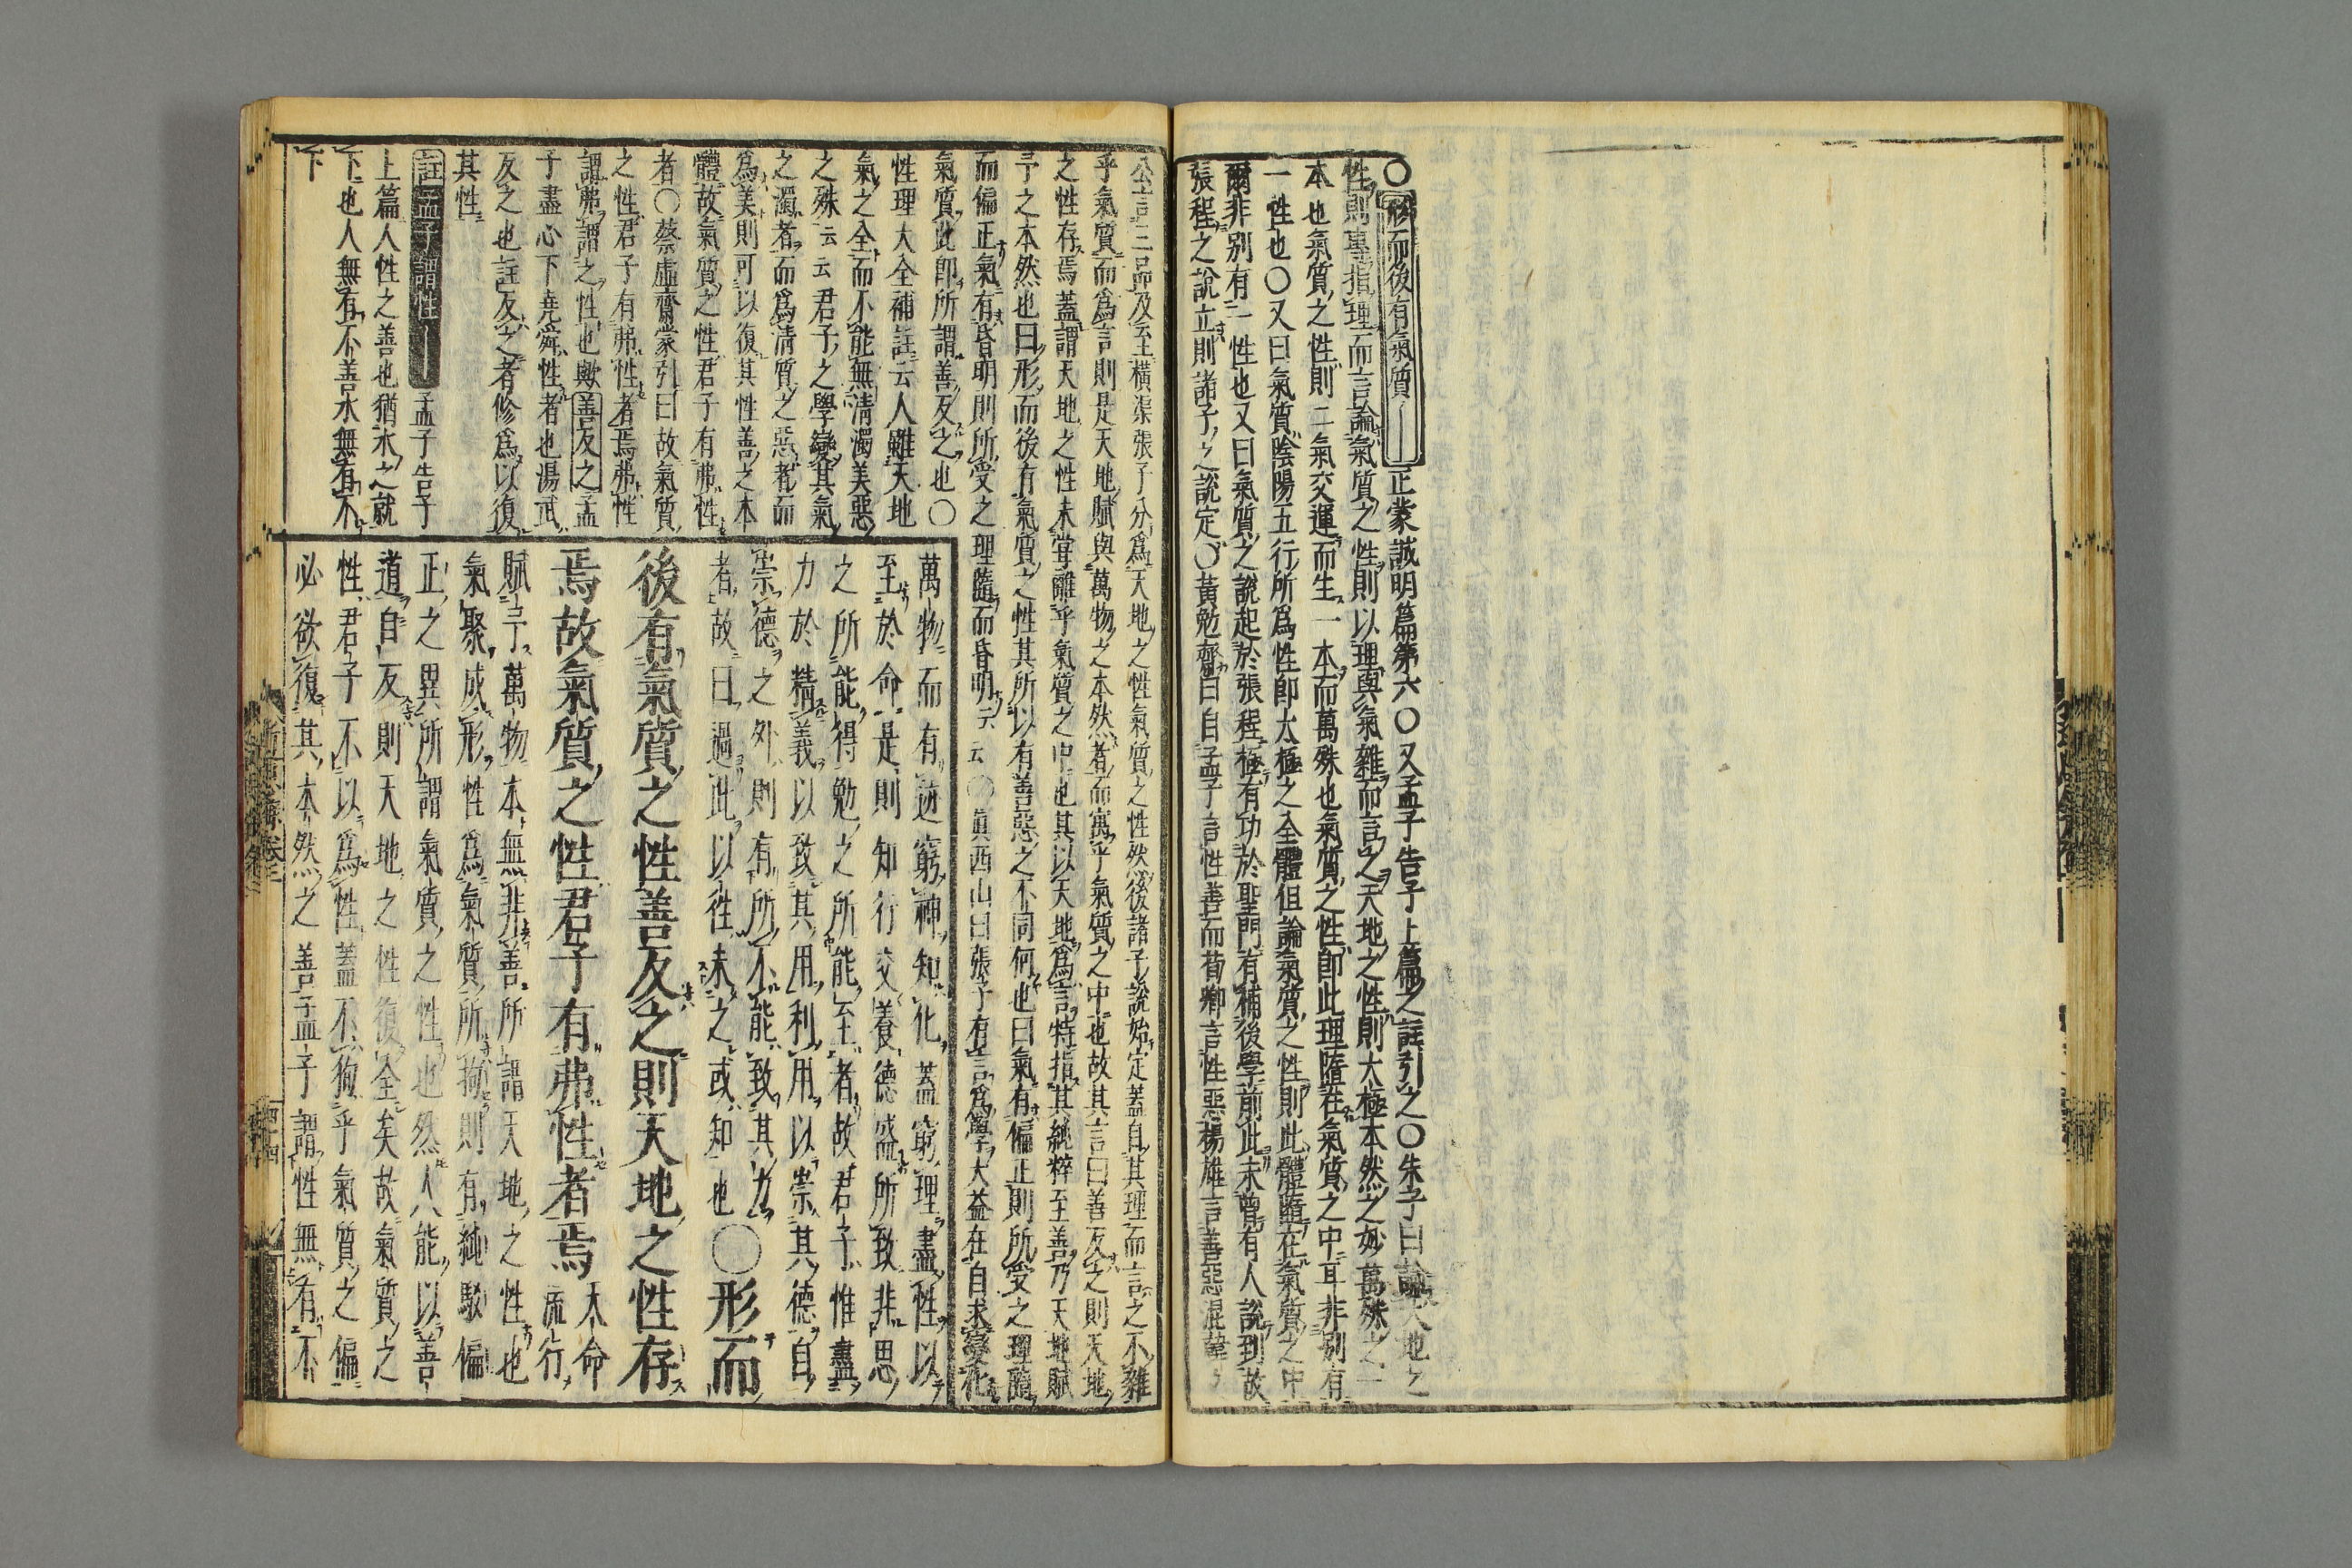 ○形而後有氣質―正蒙誠明篇第六○又孟子告子上篇之註引之○朱子曰論天地之
性則專指理而言論氣質之性則以理與氣雜而言之天地之性則大極本然之妙萬殊之一
本也氣質之性則二氣交運而生一本而萬殊也氣質之性即此理墮在氣質之中耳非別有
一性也○又曰氣質陰陽五行所爲性即太極之全體但論氣質之性則此體墮在氣質之中
爾非別有一性也又曰氣質之說起於張程極有功於聖門有補後學前此未曾有人說到故
張程之說立則諸子之說定○黃勉齋曰自孟子言性善而荀卿言性惡楊雄言善惡混韓
公言三品及至橫渠張子分爲天地之性氣質之性然後諸子說始定蓋自其理而言之不雜
乎氣質而爲言則是天地賦與萬物之本然者而寓乎氣質之中也故其言曰善反之則天地
之性存焉蓋謂天地之性未嘗離乎氣質之中也其以天地爲言特指其純粹至善乃天地賦
予之本然也曰形而後有氣質之性其所以有善惡之不同何也曰氣有偏正則所受之理隨
而偏正氣有昏明則所受之理隨而昏明云云○眞西山曰張子有言爲學大益在自求變化
氣質此即所謂善反之也○
性理大全補註云人雖天地
氣之全而不能無清濁美惡
之殊云云君子之學變其氣
之濁者而爲清質之惡者而
爲美則可以復其性善之本
體故氣質之性君子有弗性
者○蔡虛齋蒙引曰故氣質
之性君子有弗性者焉弗性
謂弗謂之性也歟善反之孟
子盡心下堯舜性者也湯武
反之也註反之者修爲以復
其性
註孟子謂性―孟子告子
上篇人性之善也猶水之就
下也人無有不善水無有不
下
萬物而有迹窮神知化蓋窮理盡性以
至於命是則知行交養德盛所致非思
之所能得勉之所能至者故君子惟盡
力於精義以致其用利用以崇其德自
崇德之外則有所不能致其力
者故曰過此以徃未之或知也○形而
後有氣質之性善反之則天地之性存
焉故氣質之性君子有弗性者焉天命
流行
賦予萬物本無非善所謂天地之性也
氣聚成形性爲氣質所拘則有純駁偏
正之異所謂氣質之性也然人能以善
道自反則天地之性復全矣故氣質之
性君子不以爲性蓋不狥乎氣質之偏
必欲復其本然之善孟子謂性無有不